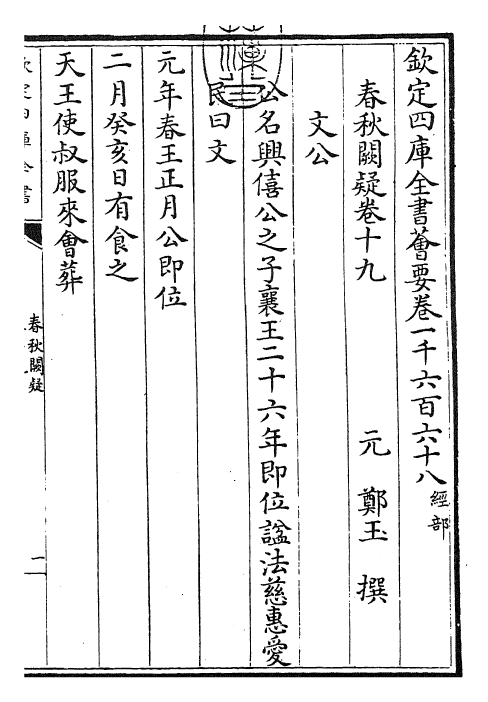 欽定四庫全書薈要卷一千六百六十八經部
春秋闕疑卷十九 元 鄭玉 撰
文公
公名興僖公之子襄王二十六年即位諡法慈惠愛
民曰文
元年春王正月公即位
二月癸亥日有食之
天王使叔服來會葬
春秋闕疑
一